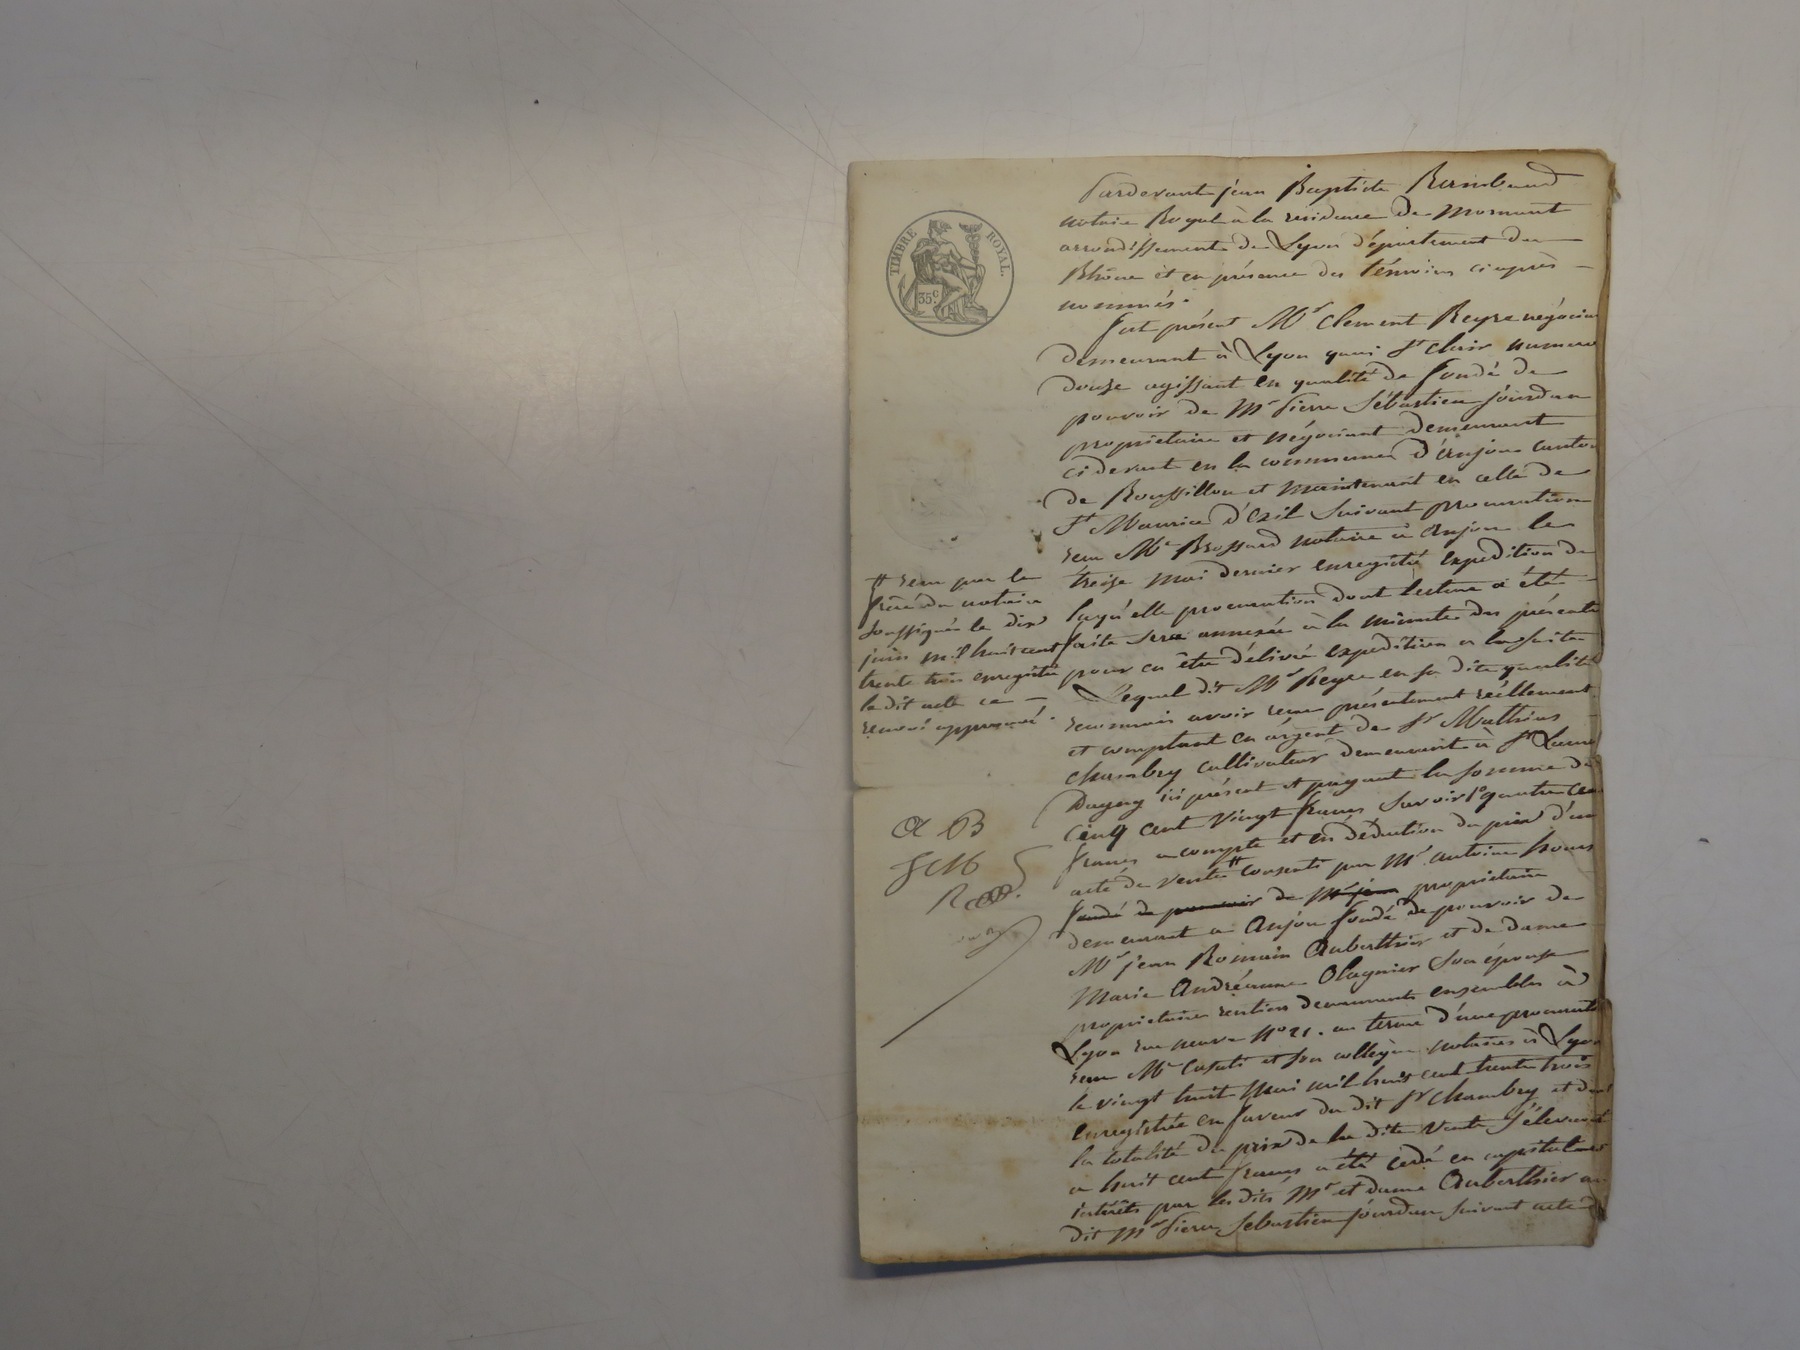 TIMBRE ROYAL.
35 c.
Pardevant jean Baptiste Rambaud
notaire Royal à la résidence de Mornant
arrondissement de Lyon département du
Rhône et en présence des témoins ci après
nommés.
fut présent Mr Clement Reyre négocian
demeurant à Lyon quai St Clair numero
douze agissant en qualité de fondé de
pouvoir de Mr Pierre Sébastien Jourdan
propriétaire et négociant demeurant
ci devant en la commune d'Anjou canton
de Roussillon et maintenant en celle de
St Maurice d'Exil suivant procuration
recu Me Brossard notaire à Anjou le
treize mai dernier enregistré expedition de
laqu'elle procuration dont lecture a été
faite sera annexée à la minute des présente
pour en être délivré expedition a la suite
Lequel dit Mr Reyre en sa dite qualité
reconnais avoir recu présentement réellement
et comptant en argent de Sr Mathias
Chambry cultivateur demeurant à St Laurent
Dagny ici présent et payant la somme de
cinq cent vingt francs Savoir 1° quatre cen
francs acompte et en déduction du prix d'un
acte de vente # consenti par Mr antoine
fondé de pouvoir de Mr jean propriétaire
demeurant a Anjou fondé de pouvoir de
Mr jean Romain Auberthier et de dame
Marie Andréanne Olagnier son épouse
propriétaires rentiers demeurants ensembles à
Lyon rue neuve No 21. au terme d'une procuration
recu Me Casati et son collègue notaires à Lyon
le vingt huit mai mil huit cent trente trois
enregistrée en faveur du dit Sr Chambry et dont
la totalité du prix de la dite vente s'élevant
a huit cent francs a été cédé en capital et
intérêts par les dits Mr et dame Auberthier au
dit Mr Pierre Sebastien Jourdan suivant acte
# recu par le
frère du notaire
soussigné le dix
juin mil huit cent
trente trois enregistré
le dit acte ce
renvoi approuvé.